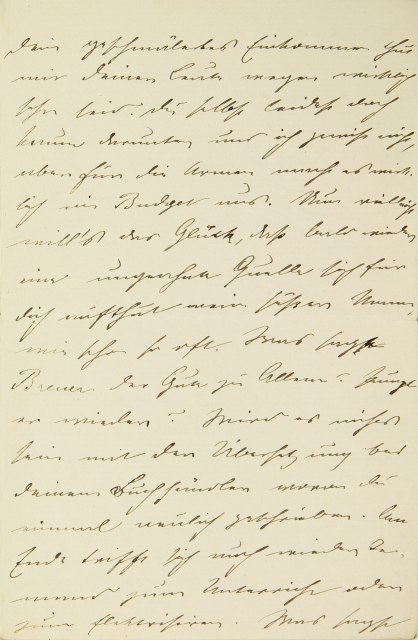 Dein geschmälertes Einkommen thut
mir Deiner Leute wegen wirklich
sehr leid. Du selbst leidest doch
kaum darunter und ich gewiss nicht,
aber für die Armen macht es wirk-
lich im Budget aus. Nun vielleicht
will's das Glück, dass bald wieder
eine ungeahnte Quelle sich für
dich aufthut mein süsser Mann,
wie schon so oft. Was sagt
Breuer der Gute zu Allem? Pumpt
er wieder? Wird es nichts
sein mit der Übersetzung bei
deinem Buchhändler wovon du
einmal neulich geschrieben. Am
Ende trifft sich auch wieder Je-
mand zum Unterricht oder
zum Elektrisiren. Was sagst